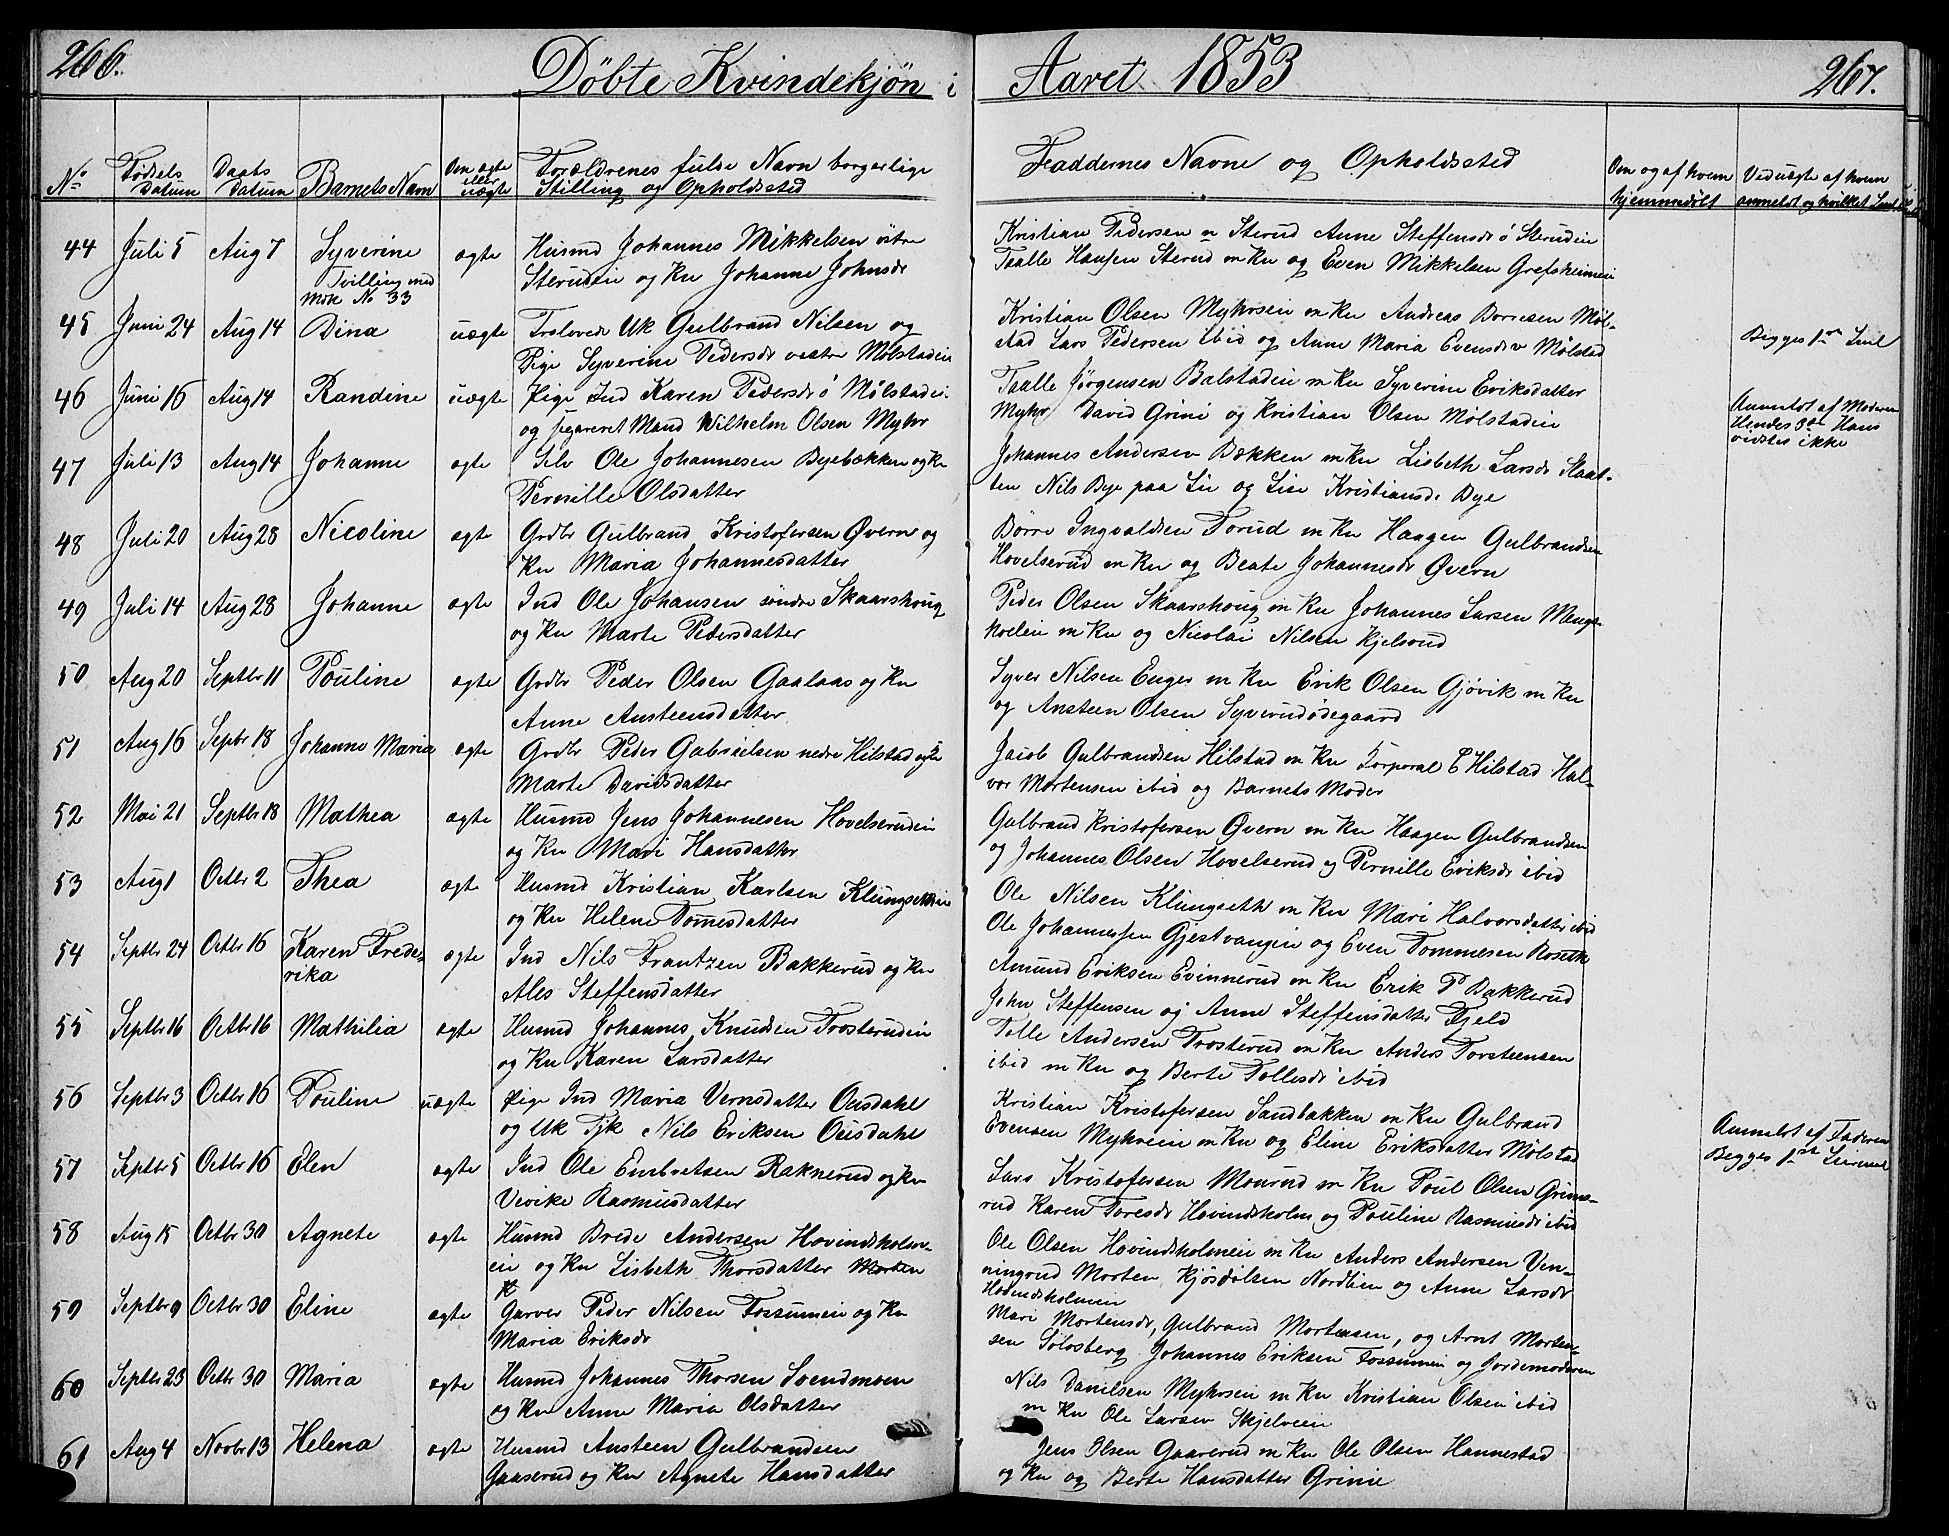 266.
Döbte Kvindekjøn i Aaret 1853
267.
No Fødsels Datum Daabs Datum Barnets Navn Om ægte eller uægte Forældrenes fulde Navn borgerlige Stilling og Opholdssted
Faddernes Navne og Opholdssted
Om og af hvem hjemmedøbt
Ved uægte af hvem
44 Juli 5 Aug 7 Syverine ægte Husmd Johannes Mikkelsen östre
Tvilling med Sterudein og Kn Johanne Johnsdr
Mdk No 33
Kristian Pedersen n Sterud Anne Steffensdr ö Sterudein
Taalle Hansen Sterud m Kn og Even Mikkelsen Grefsheimein
45 Juni 24 Aug 14 Dina uægte Trolovede Uk Gulbrand Nilsen og
Pige Syverine Pedersdr vestre Mølstadein
Kristian Olsen Myhrsein m Kn Andreas Børresen Møl-
stad Lars Pedersen ibid og Anne Maria Evensdr v Mølstad
Begges 1ste
46 Juni 16 Aug 14 Randine uægte Pige Ind Karen Pedersdr ö Mølstadei
og separeret Mand Wilhelm Olsen Myhr
Taalle Jørgensen Balstadein m Kn Syverine Eriksdatter
Myhr David Grini og Kristian Olsen Mølstadein
Anmeldt af Moderen
Hendes 3die Hans
vidstes ikke
47 Juli 13 Aug 14 Johanne ægte Selv Ole Johannesen Byebækken og Kn
Pernille Olsdatter
Johannes Andersen Bækken m Kn Lisbeth Larsdr Slaat-
ten Nils Bye paa Lie og Lise Kristiansdr Bye
48 Juli 20 Aug 28 Nicoline ægte Grdbr Gulbrand Kristofersen Øvern og
Kn Maria Johannesdatter
Börre Ingvaldsen Torud m Kn Haagen Gulbrandsen
Hovelserud m Kn og Beate Johannesdr Øvern
49 Juli 14 Aug 28 Johanne ægte Ind Ole Johansen söndre Skaarshoug
og Kn Marte Pedersdatter
Peder Olsen Skaarshoug m Kn Johannes Larsen Mengs-
hoelein m Kn og Nicolai Nilsen Kjelsrud
50 Aug 20 Septbr 11 Pouline ægte Grdbr Peder Olsen Gaalaas og Kn
Anne Austeensdatter
Syver Nilsen Enger m Kn Erik Olsen Gjövik m Kn
og Ansteen Olsen Syverudødegaard
51 Aug 16 Sepbr 18 Johanne Maria ægte Grdbr Peder Gabrielsen nedre Hilstad og Kn
Marte Davidsdatter
Jacob Gulbrandsen Hilstad m Kn Korporal E Hilstad Hal-
vor Mortensen ibid og Barnets Moder
52 Mai 21 Septbr 18 Mathea ægte Husmd Jens Johannesen Hovelserudein
og Kn Mari Hansdatter
Gulbrand Kristofersen Øvern m Kn Haagen Gulbrandsen
og Johannes Olsen Hovelserud og Pernille Eriksdr ibid
53 Aug 1 Octbr 2 Thea ægte Husmd Kristian Karlsen Klungsethein
og Kn Helene Tomesdatter
Ole Nilsen Klungseth m Kn Mari Halvorsdatter ibid
Ole Johannessen Gjestvangein og Even Tommesen Roseth
54 Septbr 24 Octbr 16 Karen Frede- ægte Ind Nils Frantzen Bakkerud og Kn
rika Ales Steffensdatter
Amund Eriksen Evinnerud m Kn Erik P Bakkerud
John Steffensen og Anne Steffensdatter Fjeld
55 Septbr 16 Octbr 16 Mathilia ægte Husmd Johannes Knudsen Trosterudein
og Kn Karen Larsdatter
Tolle Andersen Trosterud m Kn Anders Torsteensen
ibid m Kn og Berte Tollesdr ibid
56 Septbr 3 Octbr 16 Pouline uægte Pige Ind Maria Vernsdatter Ousdahl
og Uk Tjk Nils Eriksen Ousdahl
Kristian Kristofersen Sandbakken m Kn Gulbrand
Evensen Myhrein m Kn og Eline Eriksdatter Mølstad
Anmeldt af Faderen
Begges 1ste Leiermaal
57 Septbr 5 Octbr 16 Elen ægte Ind Ole Embretsen Raknerud og Kn
Vivike Rasmusdatter
Lars Kristofersen Mourud m Kn Poul Olsen Grims-
rud Karen Toresdr Hovindsholm og Pouline Rasmusdr ibid
58 Aug 15 Octbr 30 Agnete ægte Husmd Brede Andersen Hovindsholm-
ein og Kn Lisbeth Thorsdatter Morten
Ole Olsen Hovindsholmein m Kn Anders Andersen Ven-
ningrud Morten Kjøsdølsen Nordlien og Anne Larsdr
Hovindsholmein
59 Septbr 9 Octbr 30 Eline ægte Garver Peder Nilsen Fossumein og Kn
Maria Eriksdr
Mari Mortensdr, Gulbrand Mortensen, og Arnt Morten-
sen Sølosberg Johannes Eriksen Fossumein og Jordemoderen
60 Septbr 23 Octbr 30 Maria ægte Husmd Johannes Thorsen Svendmoen
og Kn Anne Maria Olsdatter
Nils Danilsen Myhrsein m Kn Kristian Olsen ibid
m Kn Ole Larsen Skjelvein
61 Aug 4 Novbr 13 Helena ægte Husmd Austeen Gulbrandsen
Gaaserud og Kn Agnete Hansdatter
Jens Olsen Gaarerud m Kn Ole Olsen Hannestad
og Kn og Berte Hansdatter Grinie